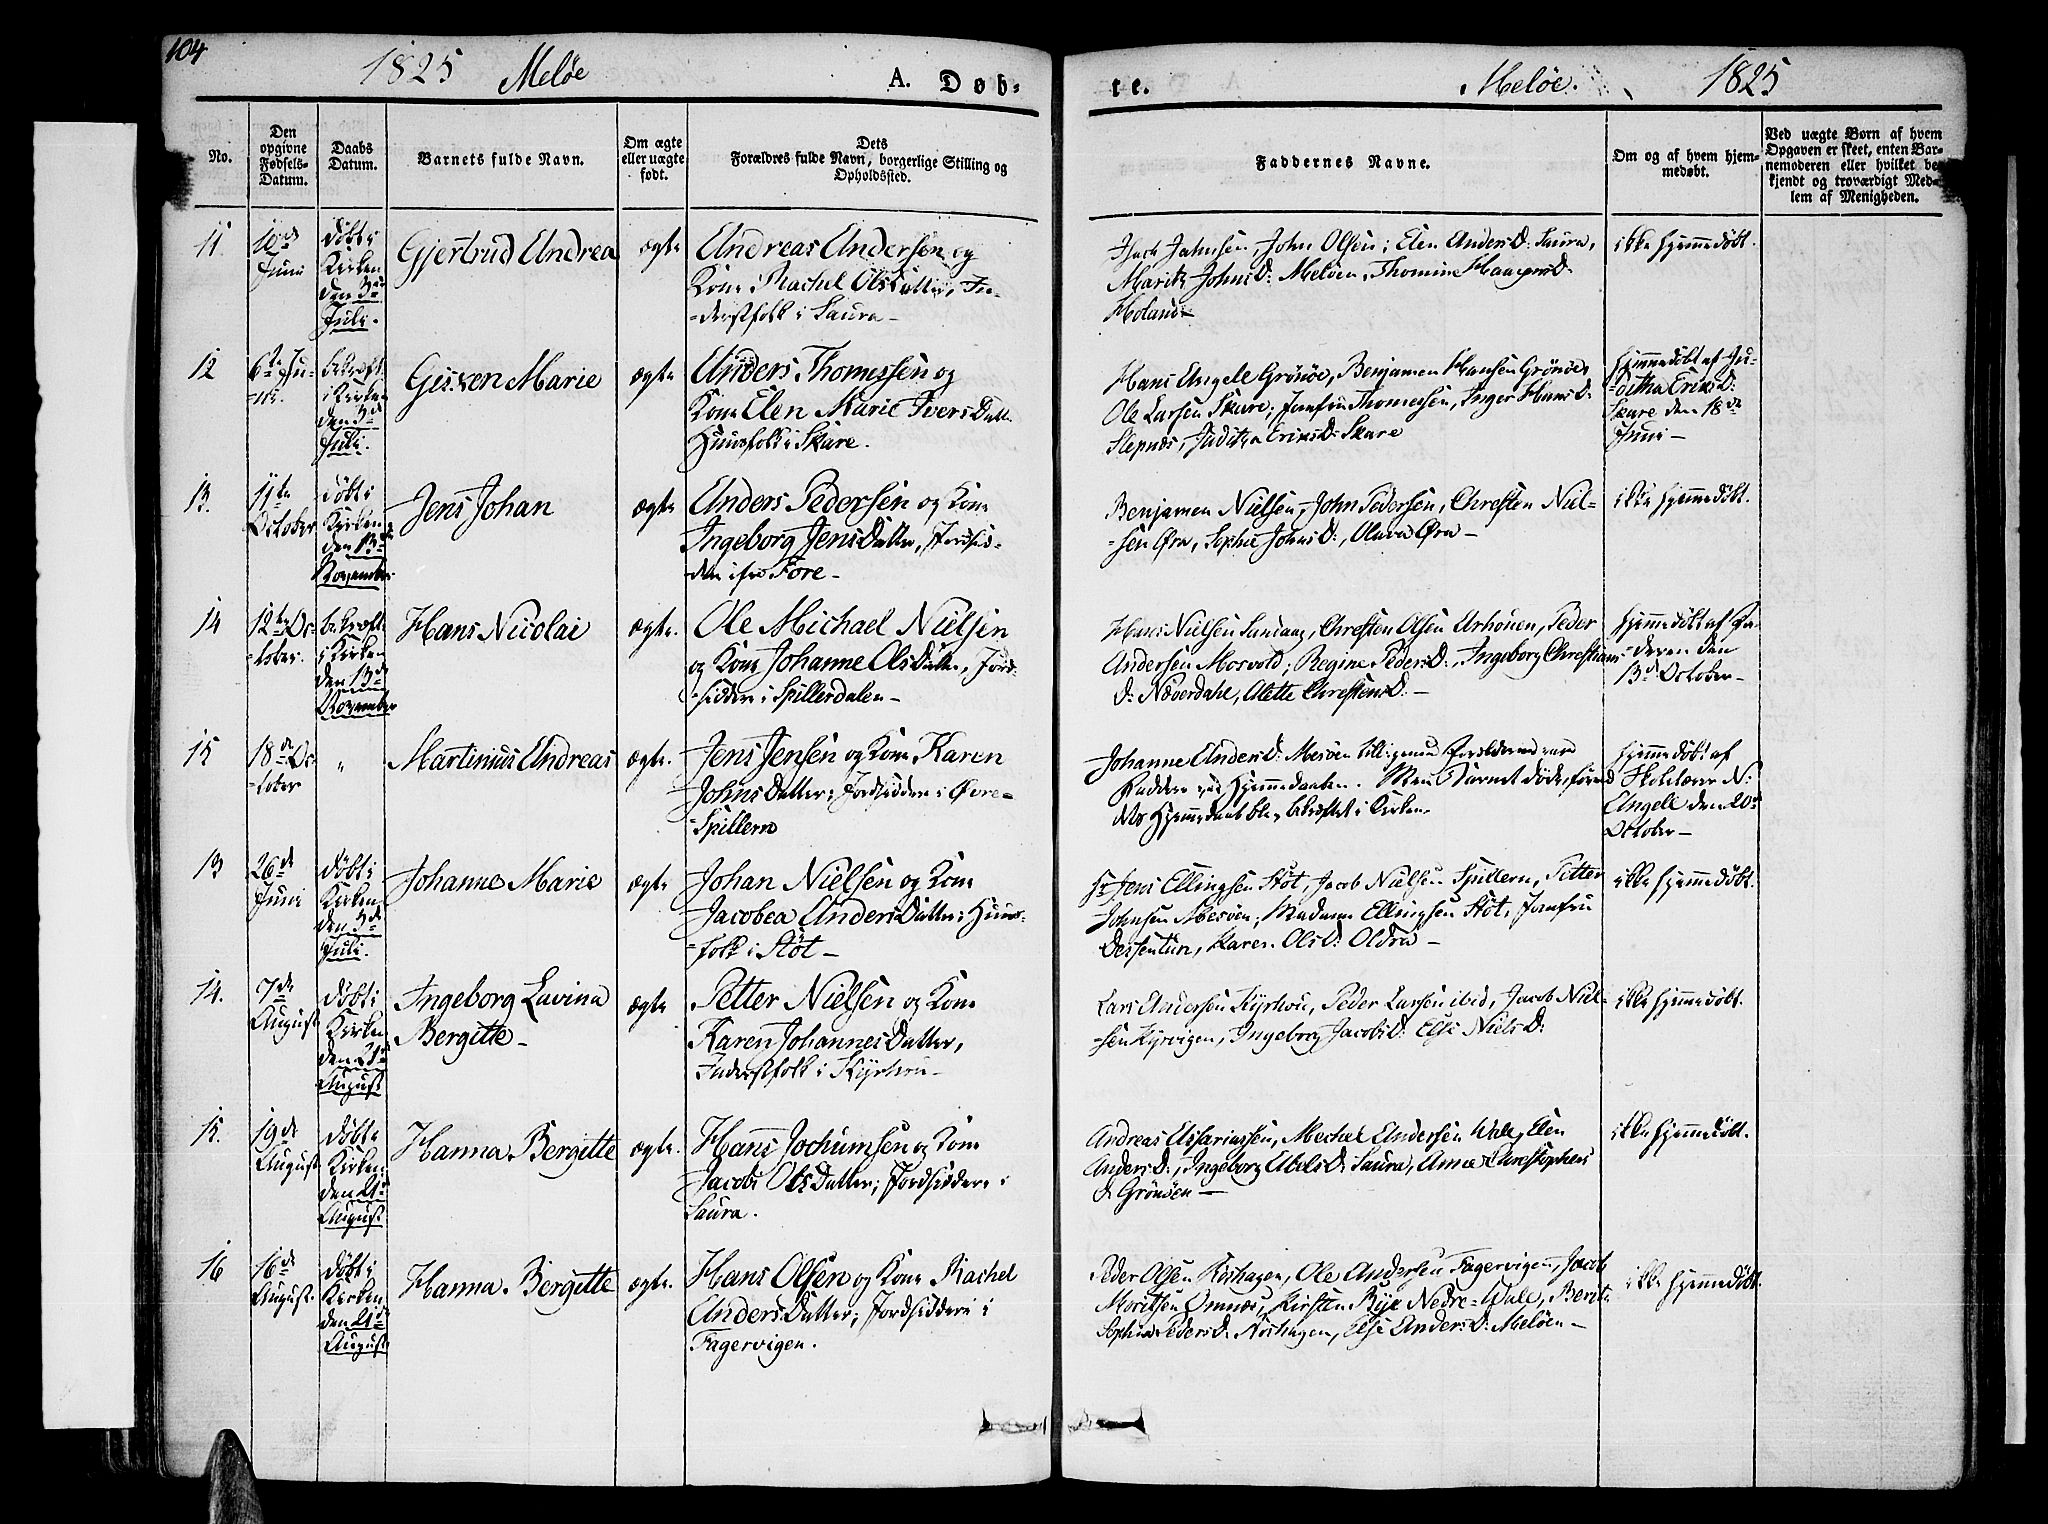 104
1825 Meløe A. Døb-
te. Meløe. 1825
No.
Den
opgivne
Fødsels-
Datum.
Daabs
Datum.
Barnets fulde Navn.
Om ægte
eller uægte
født.
Dets
Forældres fulde Navn, borgerlige Stilling og
Opholdssted.
Faddernes Navne.
Om og af hvem hjem-
medøbt.
Ved uægte Børn af hvem
Opgaven er skeet, enten Bar-
nemoderen eller hvilket be-
kjendt og troværdigt Med-
lem af Menigheden.
11
10de
Juni
døbt i
Kirken
den 3die
Juli.
Gjertrud Andrea
ægte
Andreas Andersen og
Kone Rachel OlsDatter, In-
-derstfolk i Saura-
Jahnsen, John Olsen; Elen AndersD: Saura,
Marith JohnsD: Meløen, Thomine
Holand-
ikke hjemmedøbt.
12
6te Ju-
-ni.
bekræft.
i Kirken
den 3de
Juli.
Marie
ægte
Anders Thomessen og
Kone Elen Marie IversDatt.
Huusfolk i Skare.
Hans Angele Grønøe, Benjamen Hansen Grönöe,
Ole Larsen Skare; Jomfru Thomesen, Inger HansD:
Stepnæs, Juditha EriksD: Skare
hjemmedøbt af Ju-
-ditha EriksD:
Skare den 18de
Juni-
13.
11te
October
døbt i
Kirken
den 13de
November
Jens Johan
ægte
Anders Pedersen og Kone
Ingeborg JensDatter, Jordsid-
-dere Fore-
Benjamen Nielsen, John Pedersen, Chresten Niel-
-sen Øra, Sophie JohnsD:, Olava Øra-
ikke hjemmedøbt.
14
12te Oc-
-tober.
bekræft.
i Kirken
den 13de
November
Hans Nicolai
ægte.
Ole Michael Nielsen
og Kone Johanne OlsDatter, Jord-
-siddere i Spillerdalen-
Hans Nielsen , Chresten Olsen , Peder
Andersen Mosvold; Regine PedersD:, Ingeborg Christians
D: Næverdahl, Olette ChrestensD:-
hjemmedøbt af Fa-
-deren den
13de October-
15
18de Oc-
-tober
"
Martinus Andreas
ægte.
Jens Jensen og Kone Karen
JohnsDatter; Jordsiddere i Øvre-
-Spillern
Johanne AndersD: Mesöen tilligemed Forældrene vare
Faddere ved Hjemmedaaben. Men Barnet døde førend
dets Hjemmedaab blev bekræftet i Kirken.
hjemmedøbt af
Skolelærer N:
Angell den 20de
October-
13
26de
Juni
døbt i
Kirken
den 3de
Juli.
Johanne Marie
ægte
Johan Nielsen og Kone
Jacobea AndersDatter; Huus-
-folk i Stöt-
Sr Jens Ellingsen Stöt, Jacob Nielsen Spillern, Petter
Johnsen Mesöen; Madame Ellingsen Stöt, Jomfru
Dessentun, Karen OlsD: Oldra-
ikke hjemmedøbt.
14.
7de
August
døbt i
Kirken
den 21de
August
Ingeborg Lavina
Bergitte-
ægte
Petter Nielsen og Kone
Karen JohannesDatter,
Inderstfolk i Kjerhou-
Lars Andersen Kjerhou, Peder Larsen ibid, Jacob Niel-
-sen Kjervigen, Ingeborg JacobsD: Else NielsD:
ikke hjemmedøbt.
15.
19de
August
døbt i
Kirken
den 21de
August
Hanna Bergitte
ægte.
Hans Jochumsen og Kone
Jacobe OlsDatter; Jordsiddere i
Saura.
Andreas Essariassen, Mechel Andersen Wall, Elen
AndersD:, Ingeborg AbelsD: Saura, Anne Chrestophers
D: Grönöen-
ikke hjemmedøbt.
16
16de
August.
døbt i
Kirken
den 21de
August
Hanna Bergitte
ægte.
Hans Olsen og Kone Rachel
AndersDatter; Jordsiddere i
Fagervigen.
Peder Olsen Röshagen, Ole Andersen Fagervigen, Jacob
Moritsen Ömnæs; Kirsten Bye Nedre-Wall, Berit
Sophia PedersD: Röshagen, Else AndersD: Meløen-
ikke hjemmedøbt.